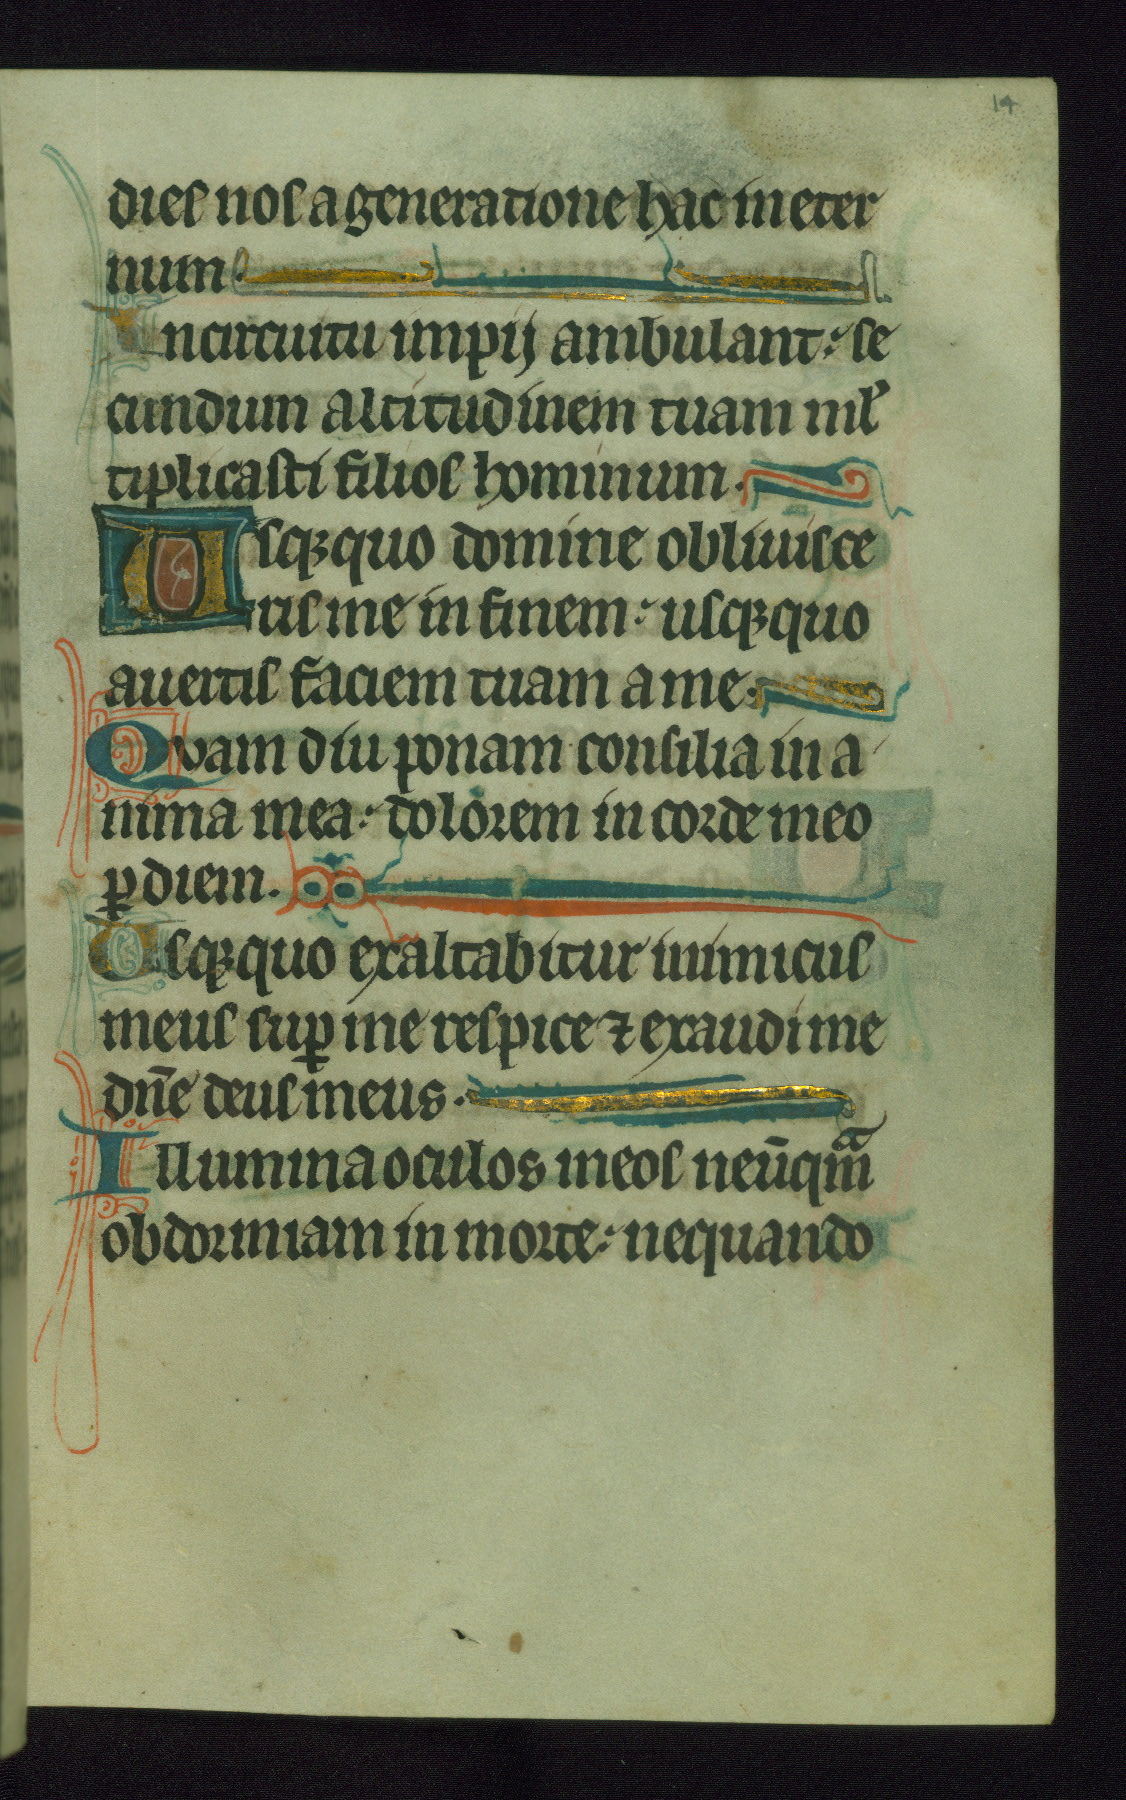 14
dies nos a generatione hac in eter
num
In circuitu impij ambulant: se
cundum altitudinem tuam ml̕
tiplicasti filios hominum.
Usqꝫquo domine obliuisce
ris me in finem: usqꝫquo
auertis faciem tuam a me.
Quam diu ponam consilia in a
nima mea: dolorem in corde meo
ꝑ diem.
Usqꝫquo exaltabitur inimicus
meus suꝑ me respice ⁊ exaudi me
dn̄e deus meus.
Illumina oculos meos neūqᷓm
obdormiam in morte: nequando